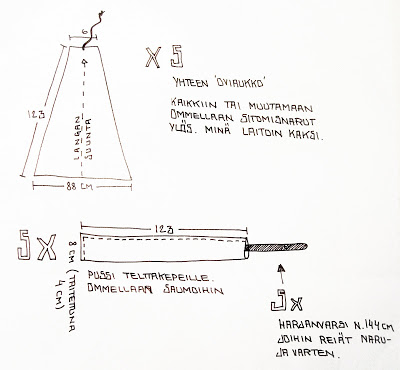 6
X 5
YHTEEN 'OVIAUKKO'
KAIKKIIN TAI MUUTAMAAN
OMMELLAAN SITOMISNARUT
YLÖS. MINÄ LAITOIN KAKSI.
123
LANGAN
SUUNTA
88 CM
5 X
123
8 CM (TAITETTUNA
4 CM)
PUSSI TELTTAKEPEILLE.
OMMELLAAN SAUMOIHIN
5 X
HARJANVARSI N. 144 CM
JOIHIN REIÄT NARU-
JA VARTEN.